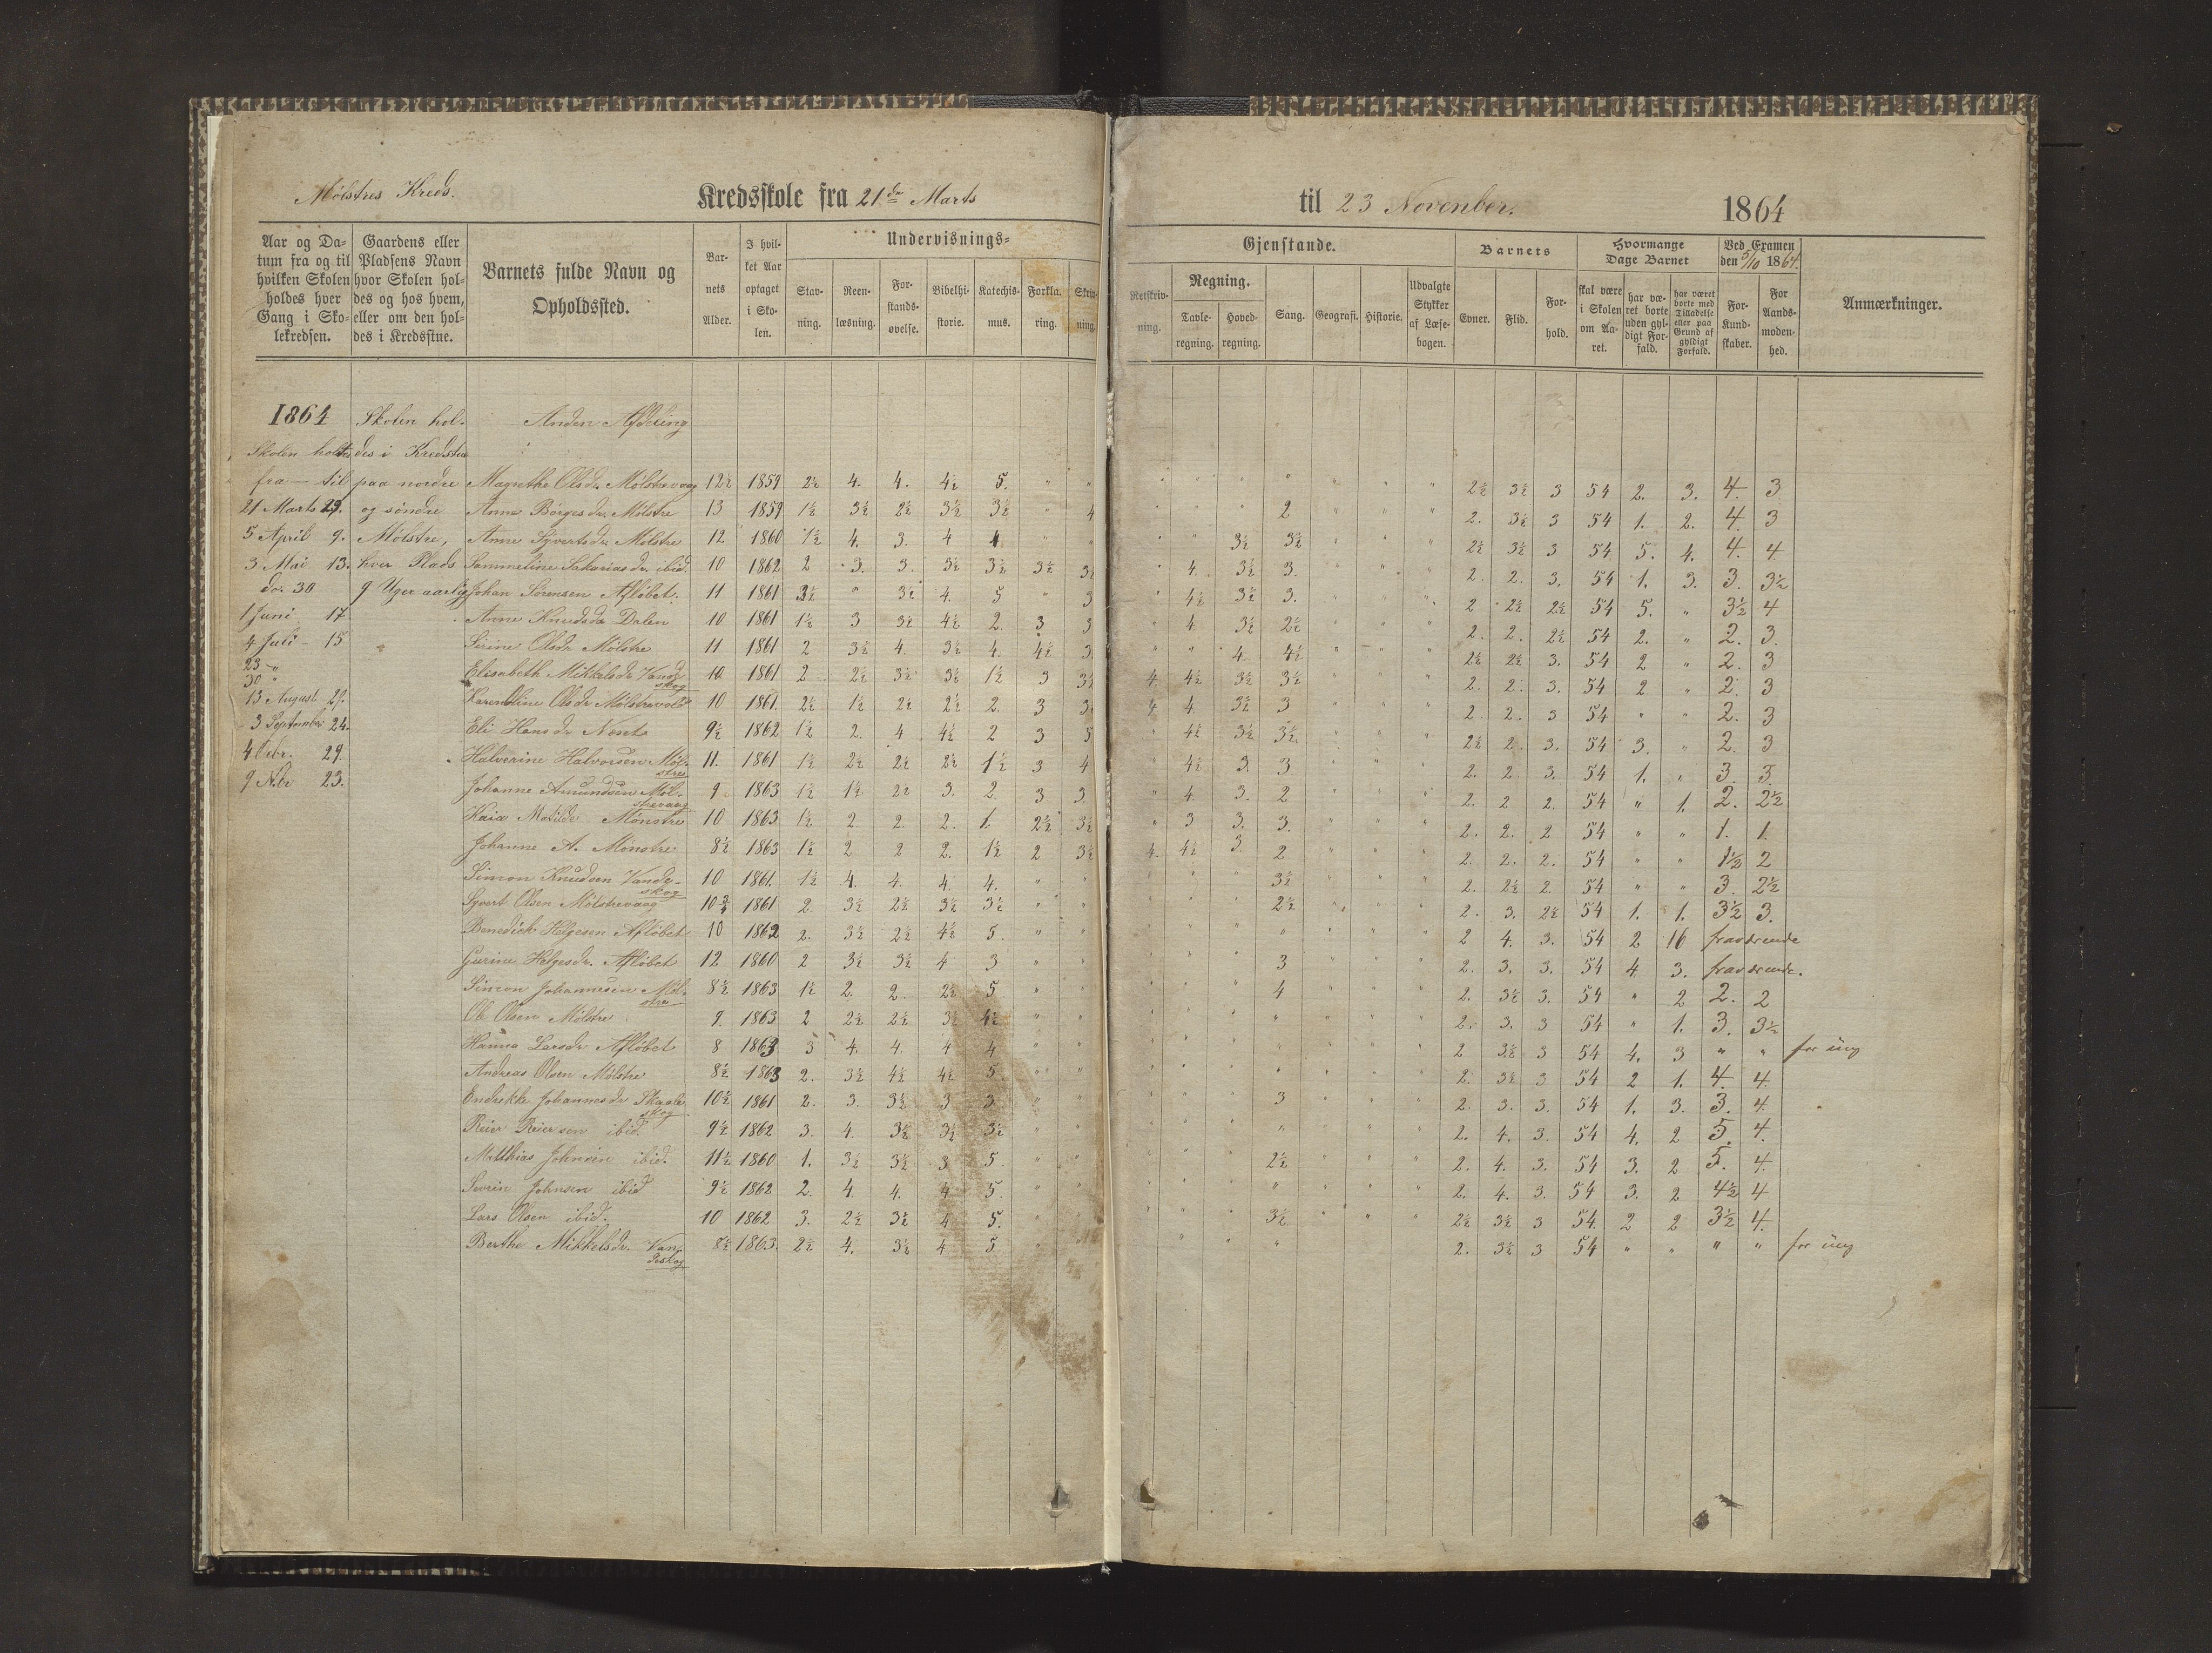 Mølstres Kreds.
Kredsskole fra 21de Marts
til 23 November.
1864
Aar og Da-
tum fra og til
hvilken Skolen
holdes hver
Gang i Sko-
lekredsen.
Gaardens eller
Pladsens Navn
hvor Skolen hol-
des og hos hvem,
eller om den hol-
des i Kredsstue.
Barnets fulde Navn og
Opholdssted.
Bar-
nets
Alder.
I hvil-
ket Aar
optaget
i Sko-
len.
Undervisnings-
Stav-
ning.
Reen-
læsning.
For-
stands-
øvelse.
Bibelhi-
storie.
Katechis-
mus.
Forkla-
ring.
Skriv-
ning.
Gjenstande.
Retskriv-
ning.
Regning.
Tavle-
regning.
Hoved-
regning.
Sang.
Geografi.
Historie.
Udvalgte
Stykker
af Læse-
bogen.
Barnets
Evner.
Flid.
For-
hold.
Hvormange
Dage Barnet
skal være
i Skolen
om Aa-
ret.
har væ-
ret borte
uden gyl-
digt For-
fald.
har været
borte med
Tilladelse
eller paa
Grund af
gyldigt
Forfald.
Ved Examen
den 5/10 1864.
For
Kund-
skaber.
For
Aands-
moden-
hed.
Anmærkninger.
1864
Skolen hol-
Anden Afdeling
Skolen holdtes
des i Kredstue
fra — til paa nordre
21 Marts 23. og søndre
5 April 9. Mølstre,
3 Mai 13. hver Plads
do. 30 9 Uger aarlig
1 Juni 17
4 Juli - 15
23 "
30 "
13 August 27.
3 September 24.
4 Octbr. 29.
9 Nvbr 23.
Magrethe Olsdr. Mølstrevaag 12½ 1859 2½ 4. 4. 4½ 5. " " 2½ 3½ 3 54 2. 3. 4. 3
Anne Børgesdr. Mølstre 13 1859 1½ 3½ 2½ 3½ 3½ " 4 2 2. 3½ 3 54 1. 2. 4. 3
Anne Syvertsdr Mølstre 12 1860 1½ 4. 3. 4 4 " " 3½ 3½ 2½ 3½ 3 54 5. 4. 4. 4
Sammeline Sakariasdr. ibid. 10 1862 2 3. 3. 3½ 3½ 3½ 3½ 4. 3½ 3. 2. 2. 3. 54 1. 3. 3. 3½
Johan Sørensen Afløbet. 11 1861 3½ " 3½ 4. 5 " 3 4½ 3½ 3. 2 2½ 2½ 54 5. " 3½ 4
Anne Knudsdr Dalen 10 1861 1½ 3 3½ 4½ 2. 3 3 4 3½ 2½ 2. 2. 2½ 54 2. " 2. 3.
Sirine Olsdr Mølstre 11 1861 2 3½ 4. 3½ 4. 4½ 3. " " 4 4½ 2½ 2½ 3. 54 2 " 2. 3
Elisabeth Mikkelsdr Vand
skog 10 1861 2 2½ 3½ 3½ 1½ 3 3½ 4. 4½ 3½ 3½ 2. 2. 3. 54 2 " 2. 3
Olsdr Mølstrevold 10 1861. 2½ 1½ 2½ 2½ 2. 3 4 3½ 3 2. 2. 3 54 " " 2. 3
Eli Hansdr 9½ 1862 1½ 2. 4 4½ 2 3 5 4½ 3½ 3½ 2½ 2. 3. 54 3. " 2. 3
Halverine Halvorsen Møl-
stre 11. 1861 1½ 2½ 2½ 2½ 1½ 3 4 4½ 3. 3 2. 2. 3. 54 1. " 3. 3.
Johanne Amundsen Møl-
strevaag 9 1863 1½ 1½ 2½ 3. 2. 3 3 " 4 3. 2 2. 2 2. 54 " 1. 2. 2½
Kaia Matilde Mønstre 10 1863 1½ 2. 2. 2. 1. 2½ 3½ " 3 3. 3. 2. 2. 2 54 " " 1. 1.
Johanne A. Mønstre 8½ 1863 1½ 2 2 2. 1½ 2 3½ 4. 4½ 3. 2 2. 2. 2. 54 " " 1½ 2
Simon Knudsen Vand-
skog 10 1861. 1½ 4. 4. 4. 4. " " 3½ 2. 2½ 2. 54 " " 3. 2½
Syvert Olsen Mølstrevaag 10¾ 1861 2. 3½ 2½ 3½ 3½ " " 2½ 2. 3. 2½ 54 1. 1. 3½ 3.
Benedick Helgesen Afløbet 10 1862 2. 3½ 2½ 4½ 5. " " 2 4. 3. 54 2 16 fraværende
Gurine Helgesdr. Afløbet 12 1860 2 3½ 3½ 4 3 " " 3 2. 3. 3. 54 4. 3. fraværende.
Simon Johannesen Møl-
stre 8½ 1863 1½ 2. 2. 2½ 5 " " 4 2. 3½ 3. 54 " 2 2. 2
Ole Olsen Mølstre 9. 1863 2 2½ 2½ 3½ 4½ " " 2. 3. 3 54 " 1. 3. 3½
Hanna Larsdr Afløbet 8 1863 3 4. 4. 4 4 " " 2 3½ 3 54 4. 3 " " for ung
Andreas Olsen Mølstre 8½ 1863 2. 3½ 4½ 4½ 5. " " 2. 3½ 3 54 2 1. 4. 4.
Endrekke Johannesdr Skaale-
skog 10½ 1861 2. 3. 3½ 3 3. " " 3 2. 3. 3. 54 1. 3. 3. 4.
Reier Reiersen ibid. 9½ 1862 3. 4. 3½ 3½ 3½ " " 2. 4. 3. 54 4. 2 5. 4.
Matthias Johnsen ibid. 11½ 1860 1. 3½ 3½ 3 5. " " 2½ 2. 4. 3. 54 3. 2 5. 4.
Severin Johnsen ibid 9½ 1862 2. 4. 4. 4 5. " " 2. 4. 3. 54 3. 2 4½ 4
Lars Olsen ibid. 10 1862 3. 2½ 3½ 4 5. 3½ 2½ 3½ 3 54. 2 2 3½ 4.
Berthe Mikkelsdr. Van-
deskog 8½ 1863. 2½ 4. 3½ 4. 5 2. 3½ 3 54 " " " " for ung